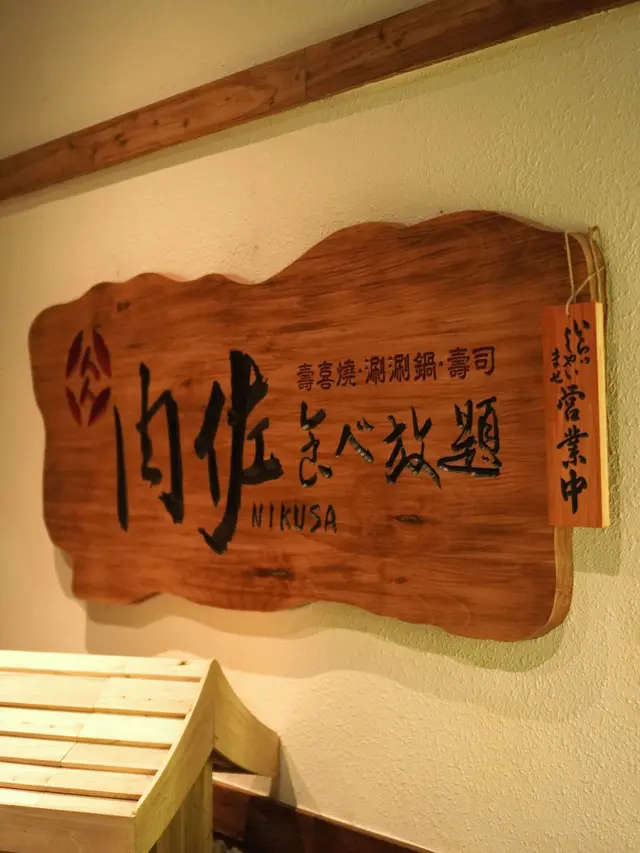 壽喜燒·涮涮鍋·壽司
肉佐 食べ放題
NIKUSA
いらっ
しゃい
ませ
営業中